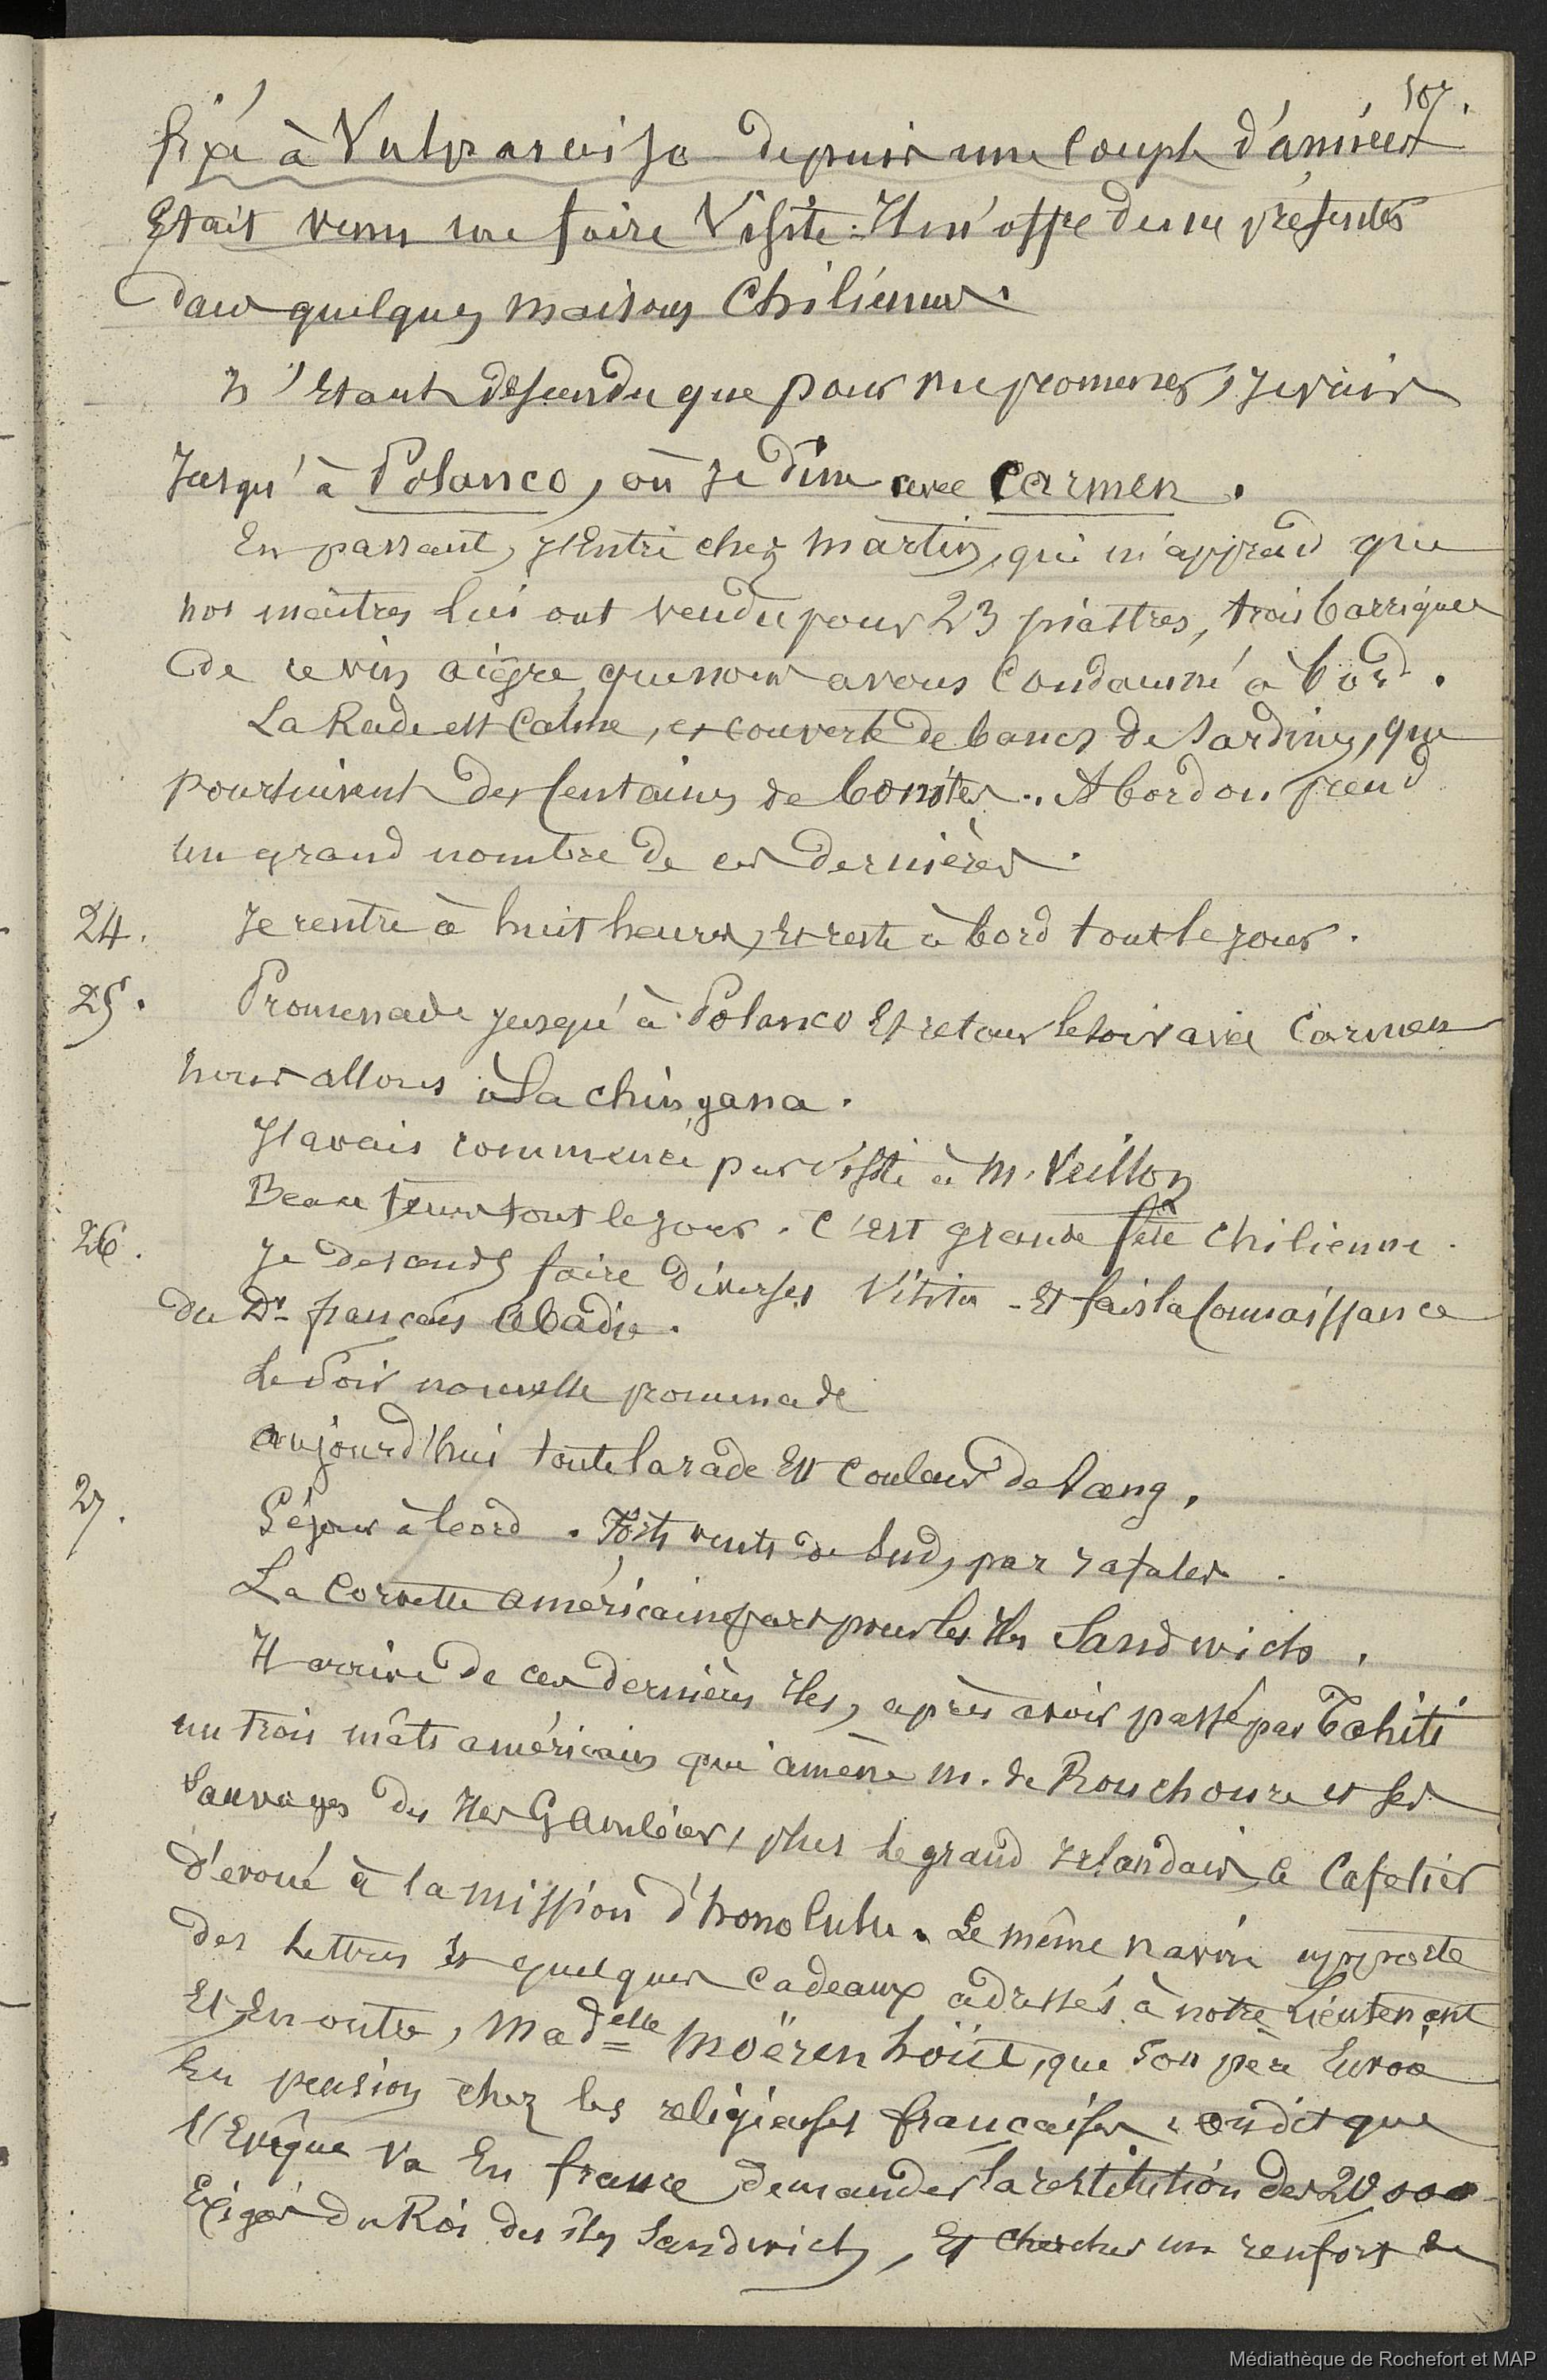 107.
fixé à Valparaiso depuis une couple d'années
Etait venu me faire Visite. Il m'offre de me présenter
dans quelques maisons Chiliennes.
N'Etant descendu que pour me promener, je vais
Jusqu'à Polanco, où je dine avec Carmen.
En passant, j'Entre chez Martin, qui m'apprend que
nos maîtres lui ont vendu pour 23 piastres, trois barriques
de ce vin aigre que nous avons Condamné à bord.
La Rade est Calme, et couverte de bancs de Sardines, que
poursuivent des Centaines de bonites. A bord on prend
un grand nombre de ces dernières.
24. Je rentre à huit heures, Et reste à bord tout le jour.
25. Promenade jusqu'à Polanco Et retour le soir avec Carmen
nous allons à la chingana.
J'avais commencé par visite à M. Veillon
Beau tems tout le jour. C'est grande fête Chilienne.
26. Je descends faire diverses Visites - Et fais la Connaissance
du Dr. français Abadie.
Le Soir nouvelle promenade
aujourd'hui toute la rade Est Couleur de Sang.
27. Séjour à bord. Forts vents de Sud, par rafales.
La Corvette américaine part pour les Iles Sandwich.
Il arrive de ces dernières Iles, après avoir passé par Tahiti
un trois mâts américain qui amène M. de Rouchouze et ses
Sauvages des Iles Gambier, plus le grand Irlandais, le Cafetier
dévoué à la mission d'honolulu. Le même navire apporte
des Lettres Et quelques Cadeaux adressés à notre Lieutenant
Et En outre, Madelle Moërenhoüt, que son père Envoie
En pension chez les religieuses françaises. On dit que
l'Evêque Va En france demander la restitution des 20,000
Exigés du Roi des îles Sandwich, Et chercher un renfort de
Médiathèque de Rochefort et MAP